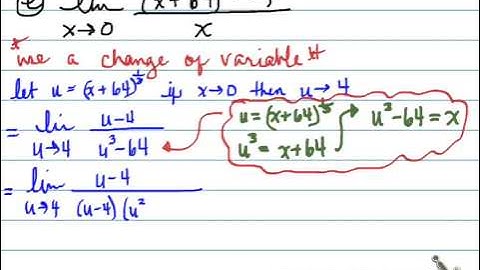 lim (x+64)
x→0 x
* use a change of variable *
let u = (x+64)^(1/3) if x→0 then u→4
= lim u-4
u→4 u³-64
u = (x+64)^(1/3)
u³ = x+64
u³-64 = x
= lim u-4
u→4 (u-4)(u²